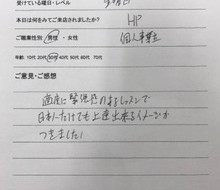 受けている曜日・レベル
本日は何をみてご来店されましたか? HP
ご職業性別 男性・女性 個人事業主
年齢: 10代 20代 30代 40代 50代 60代 70代
ご意見・ご感想
適度に緊張感のあるレッスンで
日本人だけでも上達出来るイメージが
つきました!